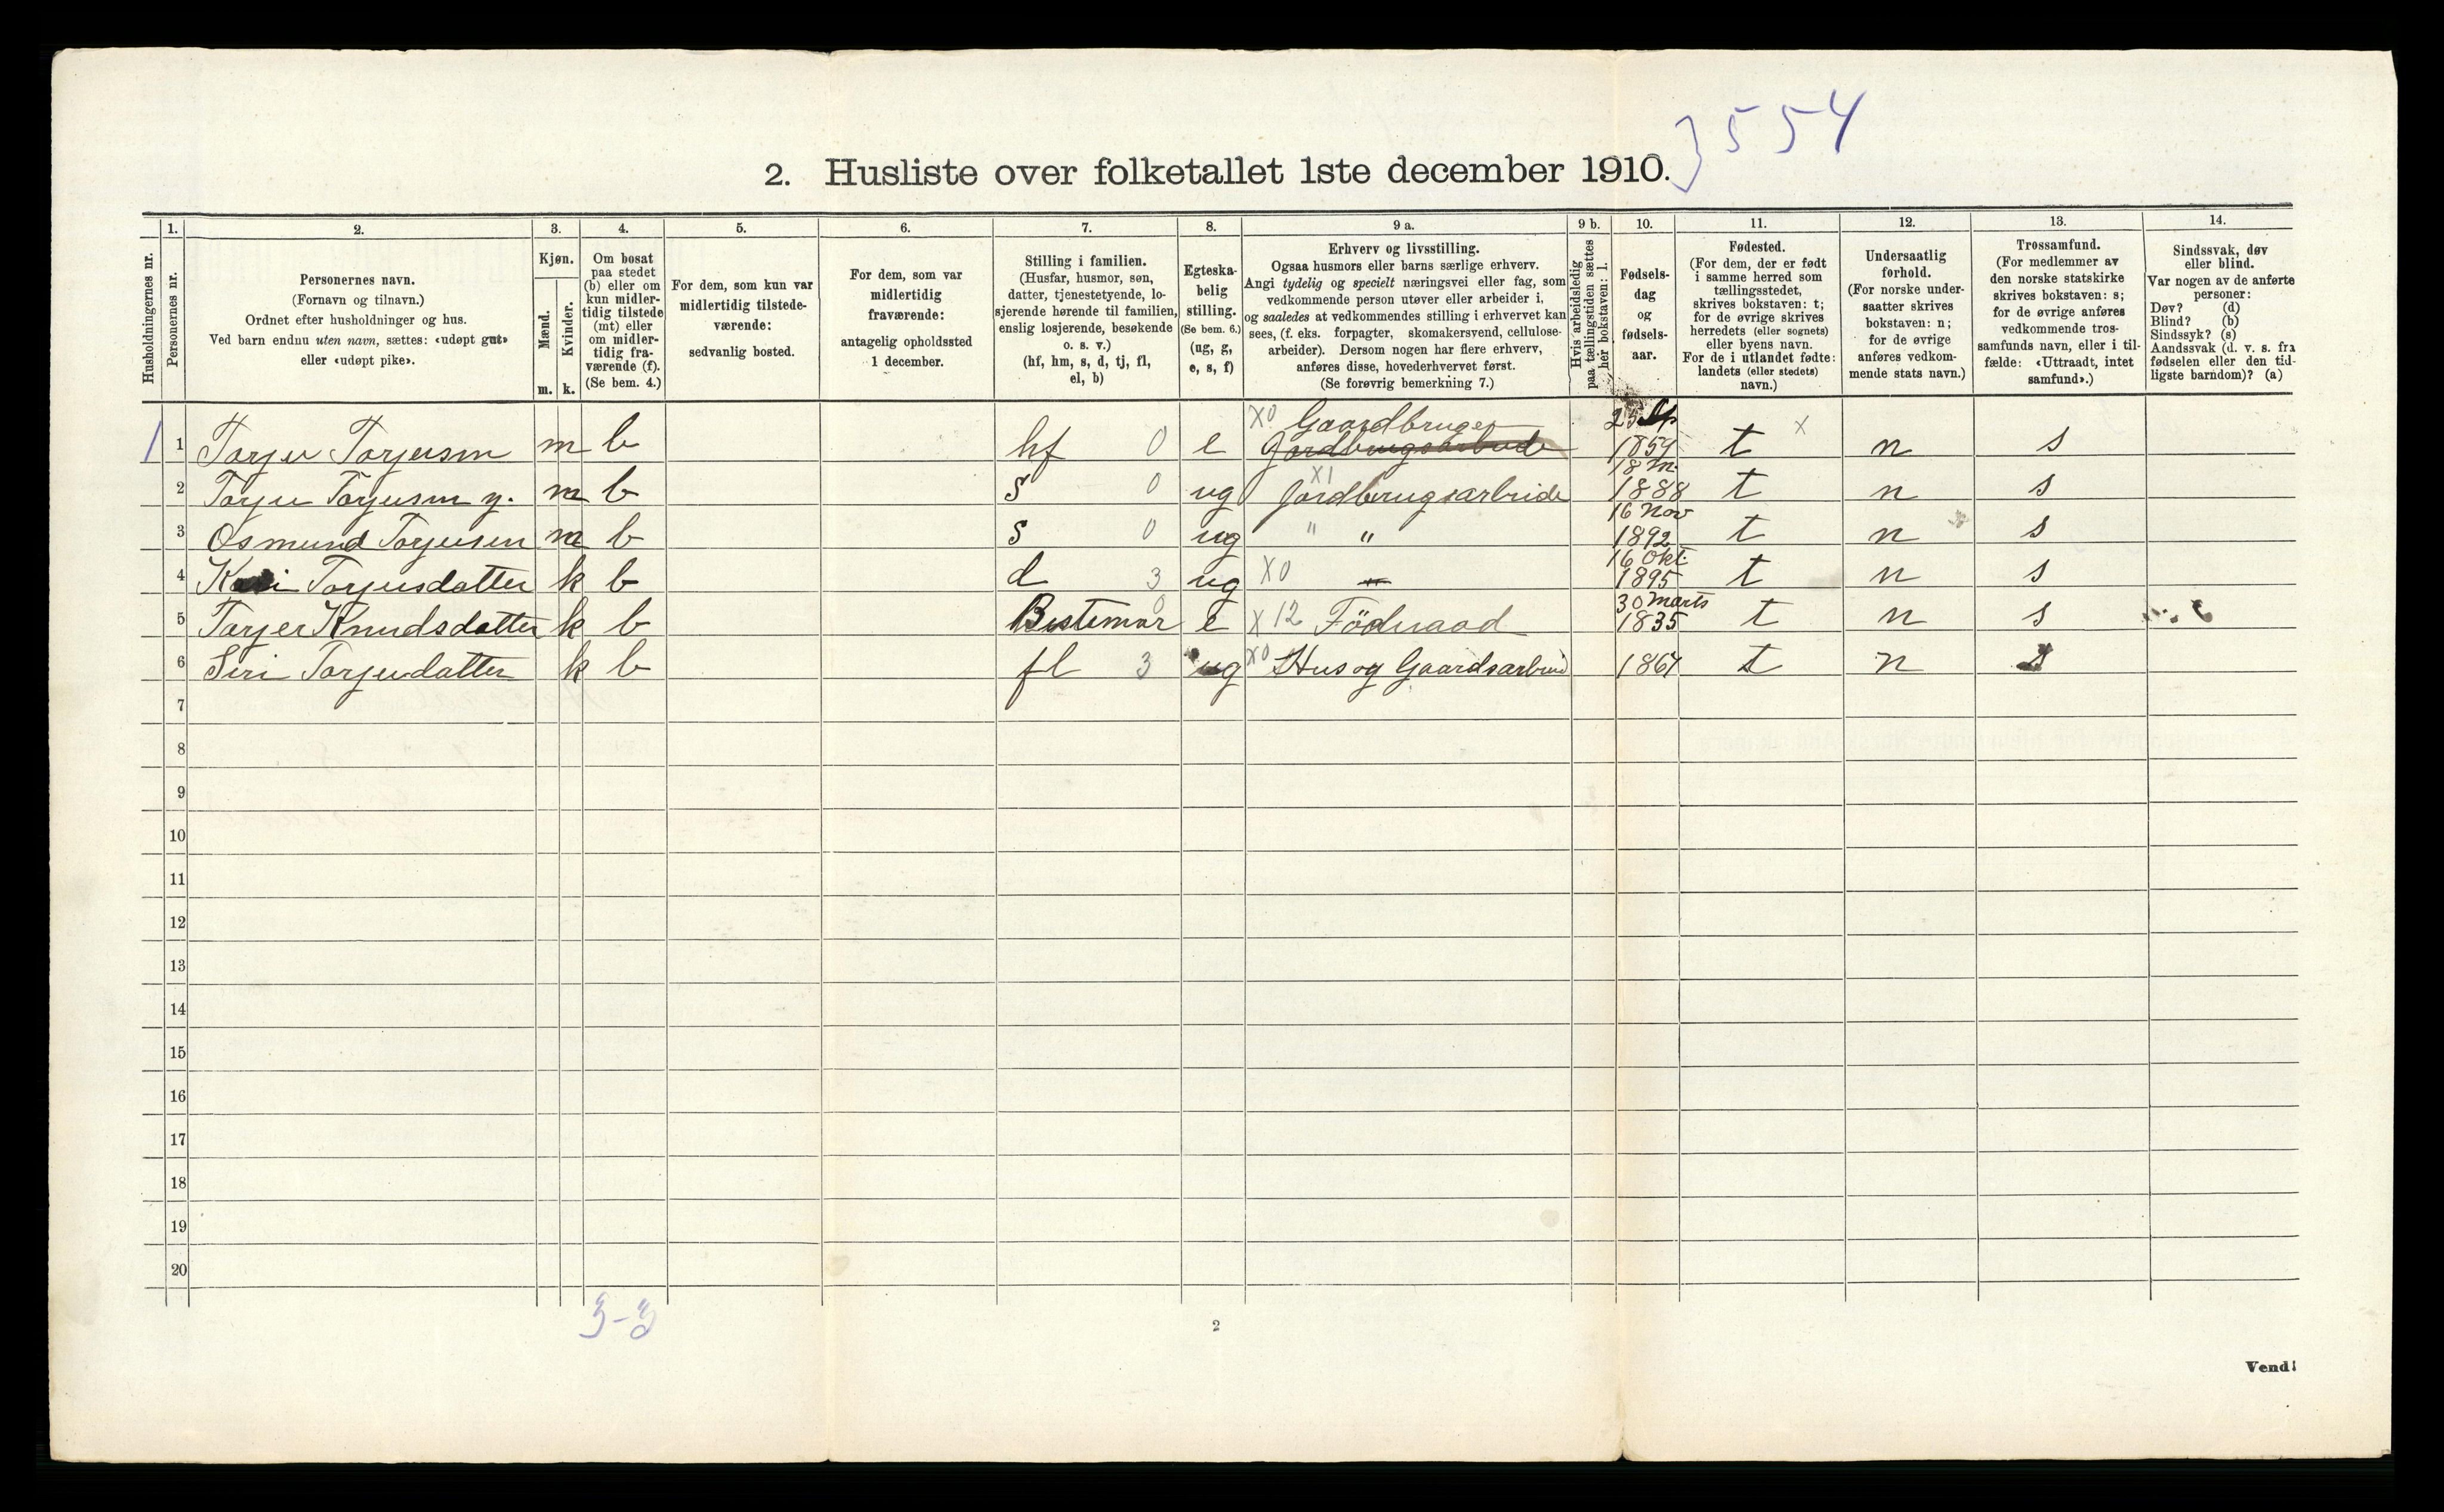 } 5 5 4
2. Husliste over folketallet 1ste december 1910.
Husholdningernes nr.
1.
Personernes nr.
2.
Personernes navn.
(Fornavn og tilnavn.)
Ordnet efter husholdninger og hus.
Ved barn endnu uten navn, sættes: «udøpt gut»
eller «udøpt pike».
3.
Kjøn.
Mænd.
m.
Kvinder.
k.
4.
Om bosat
paa stedet
(b) eller om
kun midler-
tidig tilstede
(mt) eller
om midler-
tidig fra-
værende (f).
(Se bem. 4.)
5.
For dem, som kun var
midlertidig tilstede-
værende:
sedvanlig bosted.
6.
For dem, som var
midlertidig
fraværende:
antagelig opholdssted
1 december.
7.
Stilling i familien.
(Husfar, husmor, søn,
datter, tjenestetyende, lo-
sjerende hørende til familien,
enslig losjerende, besøkende
o. s. v.)
(hf, hm, s, d, tj, fl,
el, b)
8.
Egteska-
belig
stilling.
(Se bem. 6.)
(ug, g,
e, s, f)
9 a.
Erhverv og livsstilling.
Ogsaa husmors eller barns særlige erhverv.
Angi tydelig og specielt næringsvei eller fag, som
vedkommende person utøver eller arbeider i,
og saaledes at vedkommendes stilling i erhvervet kan
sees, (f. eks. forpagter, skomakersvend, cellulose-
arbeider). Dersom nogen har flere erhverv,
anføres disse, hovederhvervet først.
(Se forøvrig bemerkning 7.)
9 b.
Hvis arbeidsledig
paa tællingstiden sættes
her bokstaven: l.
10.
Fødsels-
dag
og
fødsels-
aar.
11.
Fødested.
(For dem, der er født
i samme herred som
tællingsstedet,
skrives bokstaven: t;
for de øvrige skrives
herredets (eller sognets)
eller byens navn.
For de i utlandet fødte:
landets (eller stedets)
navn.)
12.
Undersaatlig
forhold.
(For norske under-
saatter skrives
bokstaven: n;
for de øvrige
anføres vedkom-
mende stats navn.)
13.
Trossamfund.
(For medlemmer av
den norske statskirke
skrives bokstaven: s;
for de øvrige anføres
vedkommende tros-
samfunds navn, eller i til-
fælde: «Uttraadt, intet
samfund».)
14.
Sindssvak, døv
eller blind.
Var nogen av de anførte
personer:
Døv? (d)
Blind? (b)
Sindssyk? (s)
Aandssvak (d. v. s. fra
fødselen eller den tid-
ligste barndom)? (a)
X0 Gaardbruger 25 Sp
1 1 Torjer Torjersen m b hf 0 e Jordbrugsarbeide 1859 t x n s
X1 18 M
2 Torjer Torjusen y. m b s 0 ug Jordbrugsarbeide 1888 t n s
16 Nov
3 Osmund Torjusen m b s 0 ug " " 1892 t n s
16 Okt.
4 Kari Torjusdatter k b d 3 ug X0 " 1895 t n s
30 Marts
5 Torjer Knudsdatter k b Bestemor 0 e X 12 Föderaad 1835 t n s
6 Siri Torjusdatter k b fl 3 ug X0 Hus og Gaardsarbeid 1867 t n s
7
8
9
10
11
12
13
14
15
16
17
18
19
20
3-3
2
Vend!